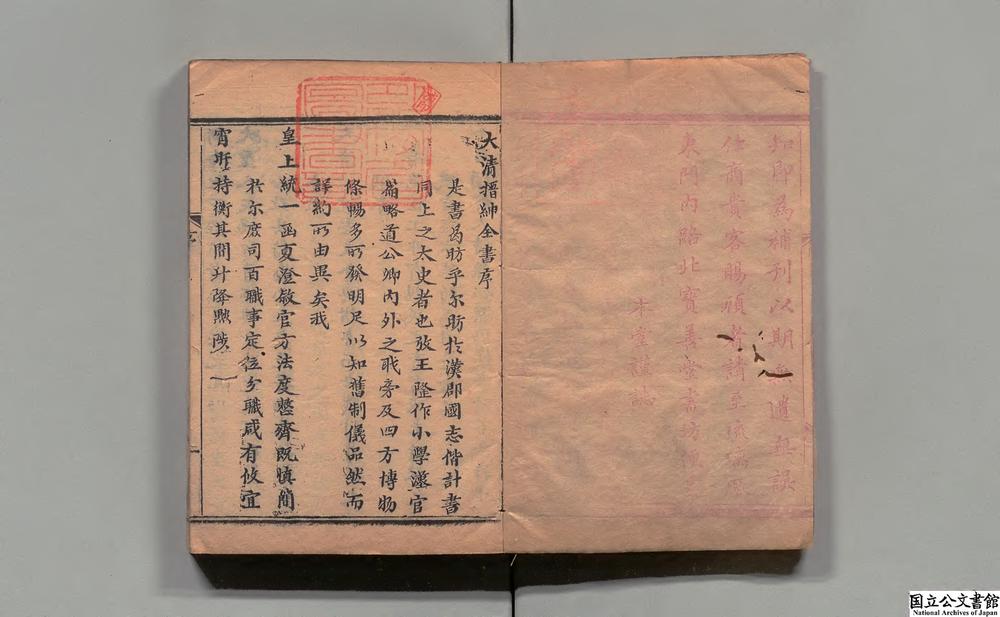 知即為補刊以期無遺無誤
仕商貴客賜顧者請至琉璃厰
東門內路北寶善堂書坊便是
本堂謹誌
大清搢紳全書序
是書曷昉乎尔昉扵漢郡國志偕計書
同上之太史者也攷王隆作小學漢官
篇略道公卿內外之職旁及四方博物
條暢多所發明足以知舊制儀品然而
詳約所由異矣我
皇上統一函夏澄敘官方法度整齊既慎簡
扵尔庶司百職事定位分職咸有攸宜
宵旰持衡其間升降黜陟
国立公文書館
National Archives of Japan